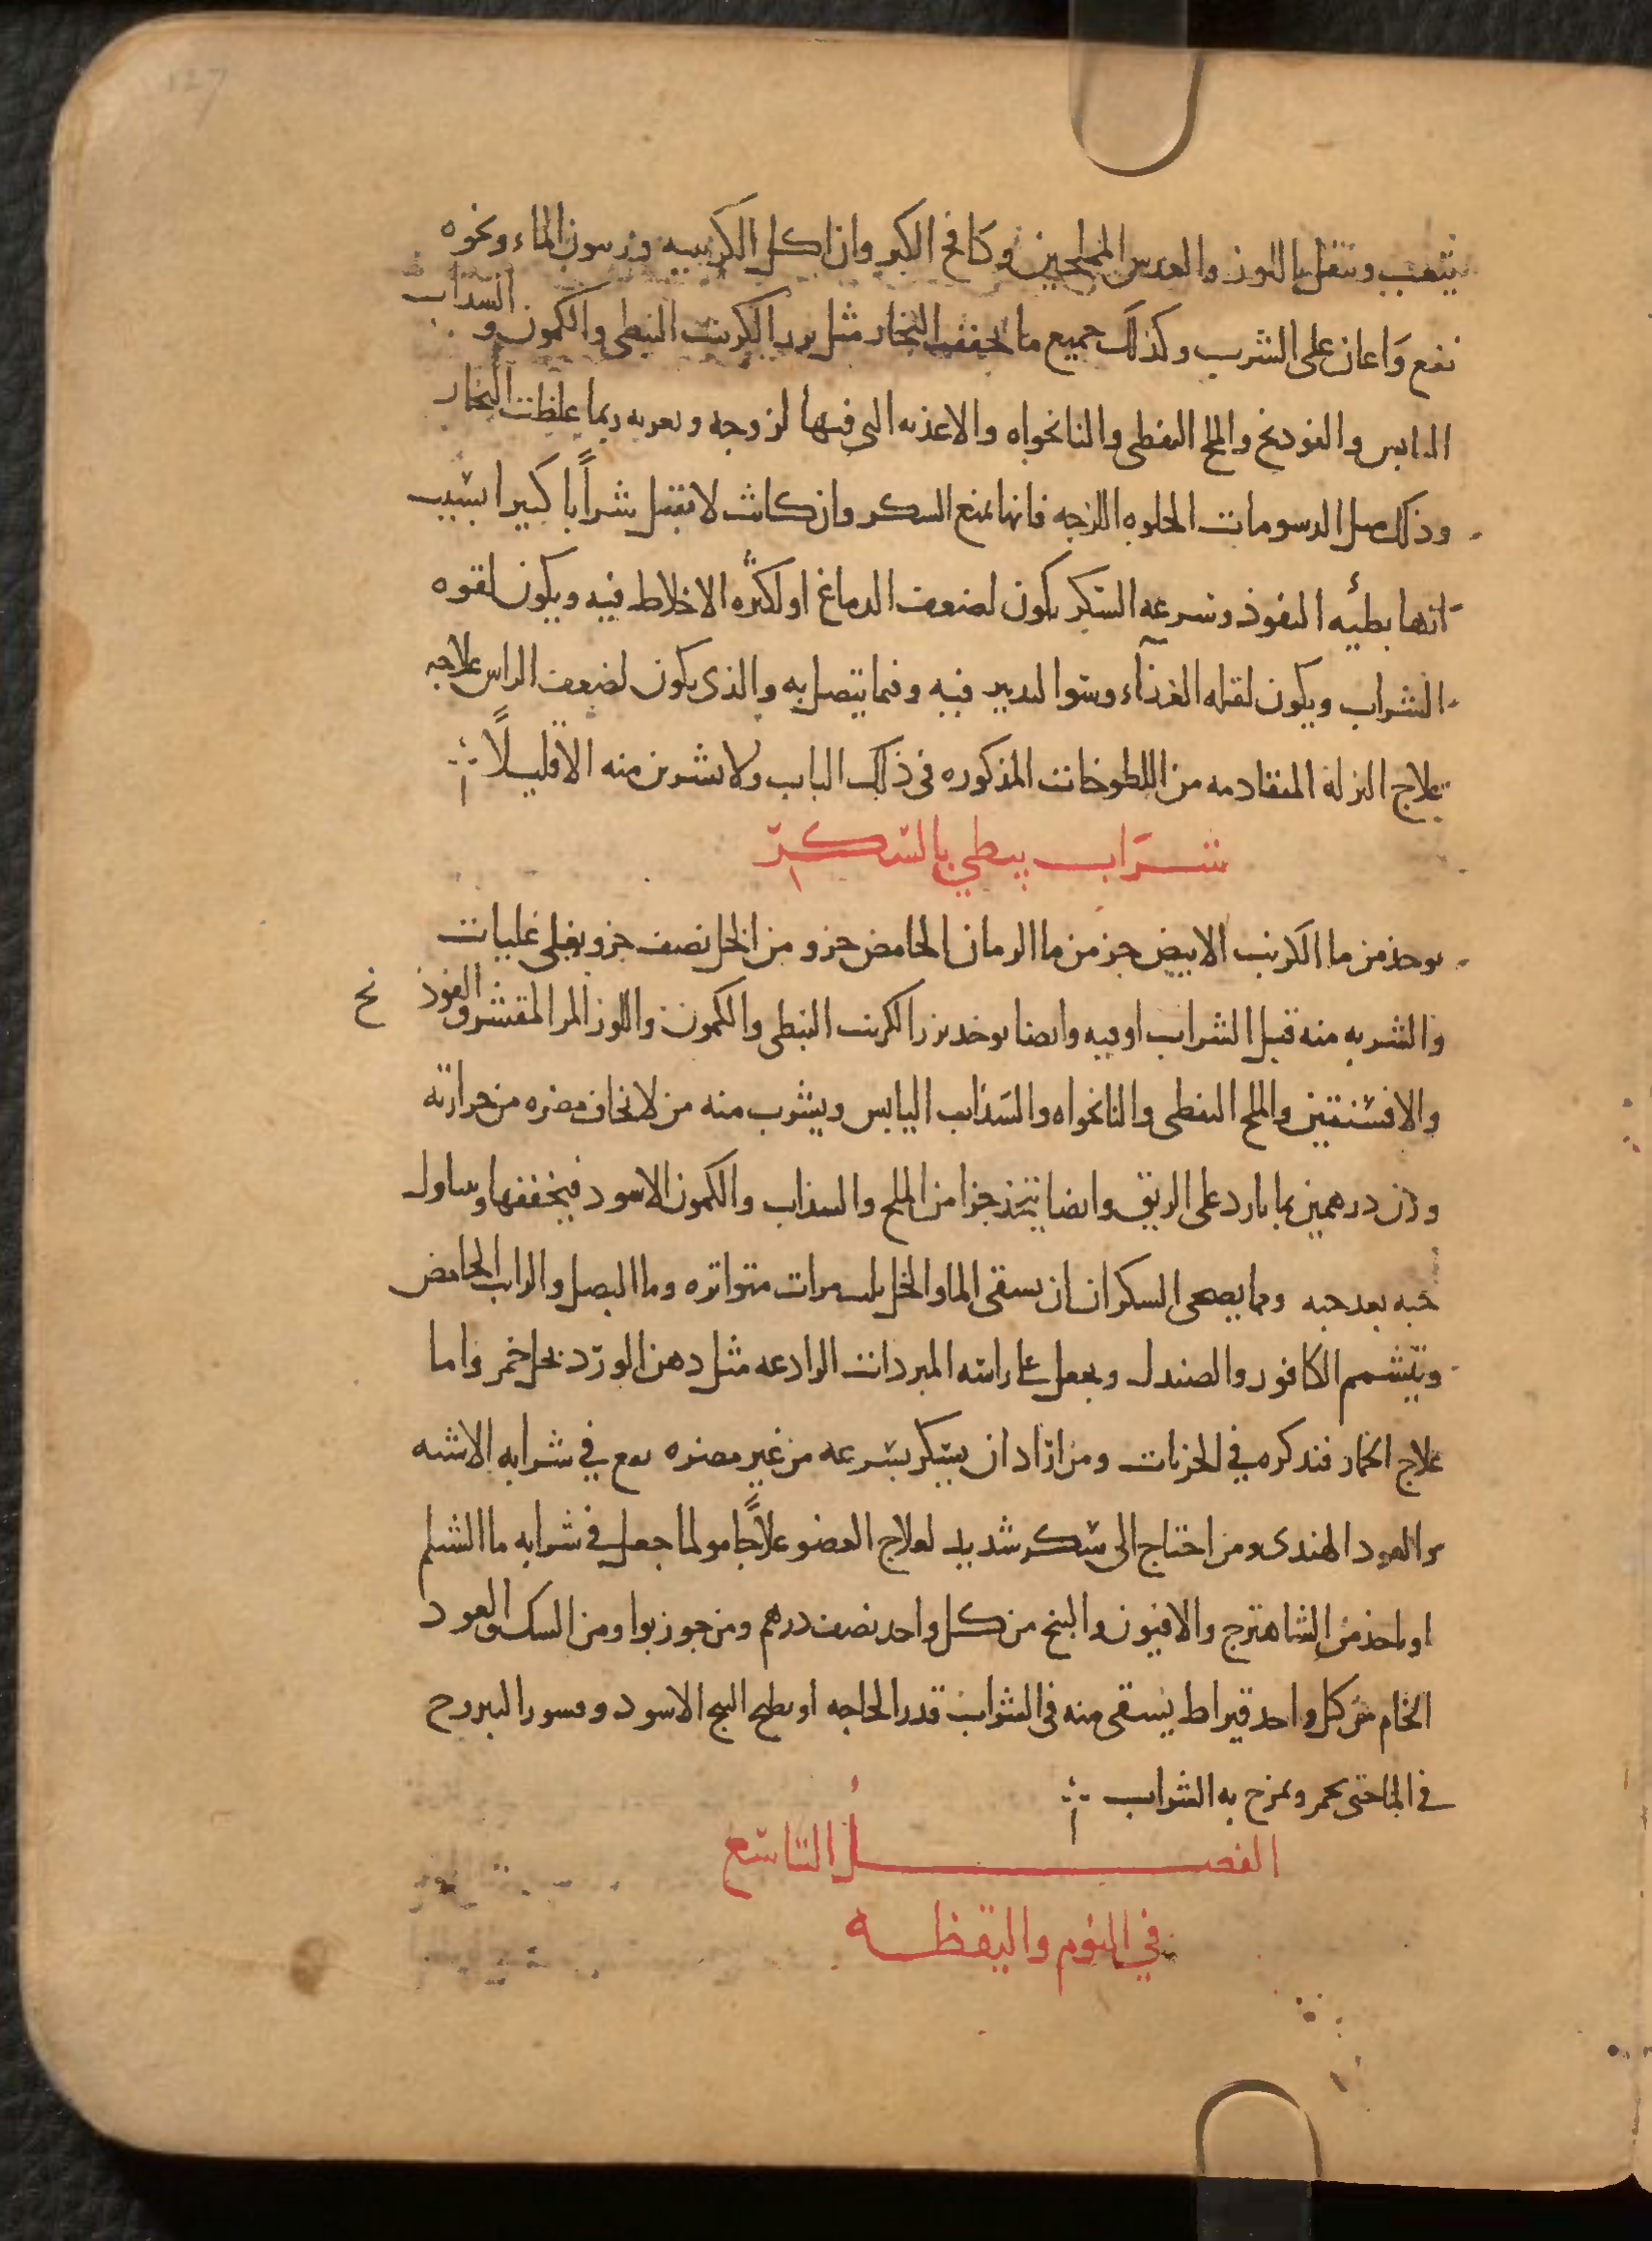 127
يتعب وينتقل باللوز والعدس المملحين وكامخ الكبر وان اكل الكرنبيه وزيتون الماء ونحوه
نفع وَاعان على الشرب وكذلك جميع ما يجفف البخار مثل بزر الكرنب النبطى والكمون و السداب
اليابس والفودنج والملح النفطى والنانخواه والاغذيه التى فيها لزوجه وتغريه ربما غلظت البخار
وذلك مثل الدسومات الحلوه اللزجه فانها تمنع السكر وان كانت لا تقبل شراًبا كبيرا بسبب
انها بطيئه النفوذ وسرعه السكر يكون لضعف الدماغ او لكثره الاخلاط فيه ويكون لقوه
الشراب ويكون لقله الغذآء وسوا التدبير فيه وفيما يتصل به والذى يكون لضعف الراس علاجه
علاج النزلة المتقادمه من اللطوخات المذكوره فى ذلك الباب ولا يشربن منه الا قليلًا
شرَاب يبطي بالسكر
يوخذ من ما الكرنب الابيض جز من ما الرمان الحامض جز و من الخل نصف جز ويغلى غليات
والشربه منه قبل الشراب اوقيه وايضا يوخذ بزر الكرنب النبطى والكمون واللوز المر المقشر والفوذ نج
والافسنتين والملح النفطى والنانخواه والسَذاب اليابس ويشرب منه من لا يخاف مضره من حرارته
وزن درهمين بما بارد على الريق وايضا يتخذ جزا من الملح والسذاب والكمون الاسود فيجففها ويتناول
حبه بعد حبه ومما يصحى السكران ان يسقى الما والخل ثلث مرات متواتره وما البصل والراب الحامض
ويتشمم الكافور والصندل ويجعل على راسه المبردات الرادعه مثل دهن الورد بخل خمر واما
علاج الخمار فنذكره في الجزيات ومن ارَاد ان يسكر بسرعه من غير مضره نقع في شرابه الاشنه
والعود الهندى ومن احتاج الى سكر شديد لعلاج العضو علاًجا مولما جعل في شرابه ما الشيلم
او ياخذ من الشاهترج والافيون والبنج من كل واحد نصف درهم ومن جوز بوا ومن السك والعود
الخام من كل واحد قيراط يسقى منه فى الشراب قدر الحاجه او يطبخ البنج الاسود وقشور اليبروح
في الما حتى يحمر ويمزج به الشراب
الفصلُ التاسع
في النوم واليقظه